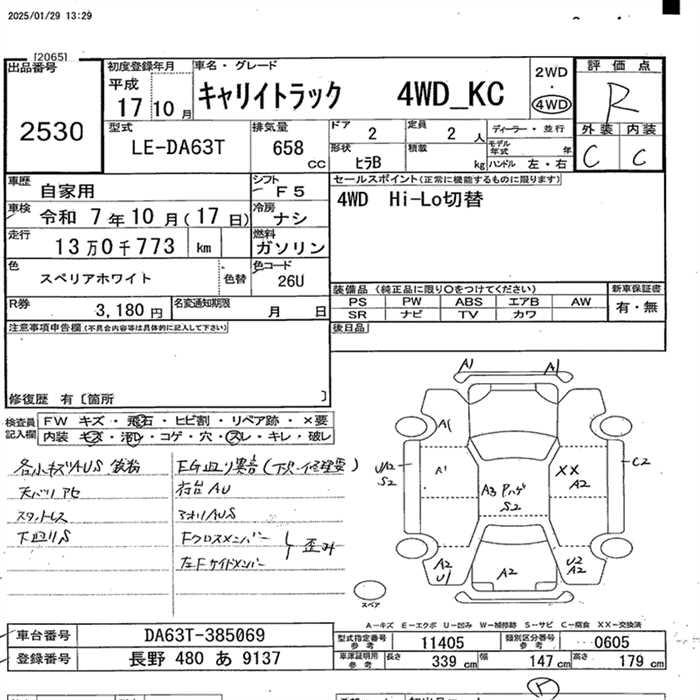 2025/01/29 13:29
[2065]
出品番号
2530
初度登録年月
平成
17 10月
車名・グレード
キャリイトラック 4WD_KC
2WD
・
4WD
評価点
R
外装 内装
C C
型式
LE-DA63T
排気量
658
cc
ドア 2
定員 2 人
ディーラー・並行
形状 ヒラB
積載 kg
モデル年式 年
ハンドル 左・右
車歴 自家用
シフト F5
セールスポイント(正常に機能するものに限ります)
4WD Hi-Lo切替
車検 令和 7年10月(17日)
冷房 ナシ
走行 13万0千773 km
燃料 ガソリン
色 スペリアホワイト 色替
色コード 26U
装備品(純正品に限り○をつけてください)
新車保証書
PS PW ABS エアB AW
SR ナビ TV カワ
有・無
R券 3,180 円
名変通知期限 月 日
後日品
注意事項申告欄(不具合内容等は具体的に記入して下さい)
修復歴 有〔箇所 〕
検査員記入欄
FW キズ・飛石・ヒビ割・リペア跡・×要
内装 キズ・汚レ・コゲ・穴・スレ・キレ・破レ
各小キズAUS
天バリアセ
スタットレス
下廻りS
右台AU
アオリAUS
Fクロスメンバー
左Fサイドメンバー
歪み
A1 A1
A1
UA2
S2
A1
XX
A2
C2
A3 Pハゲ
S2
A2
U1
A2
U2
A2
スペア
A-キズ E-エクボ U-凹み W-補修跡 S-サビ C-腐食 XX-交換済
車台番号 DA63T-385069
型式指定番号参考 11405
類別区分番号参考 0605
登録番号 長野 480 あ 9137
車庫証明用参考 長さ 339 cm 幅 147 cm 高さ 179 cm
P